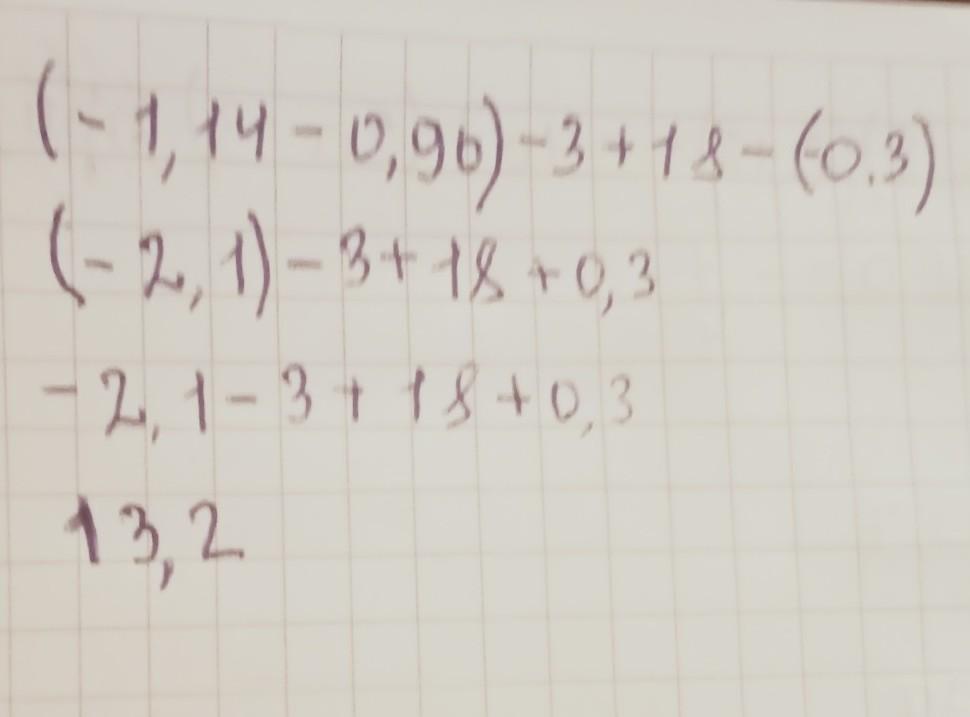 (-1,14-0,96)-3+18-(-0.3)
(-2,1)-3+18+0,3
-2,1-3+18+0,3
13,2